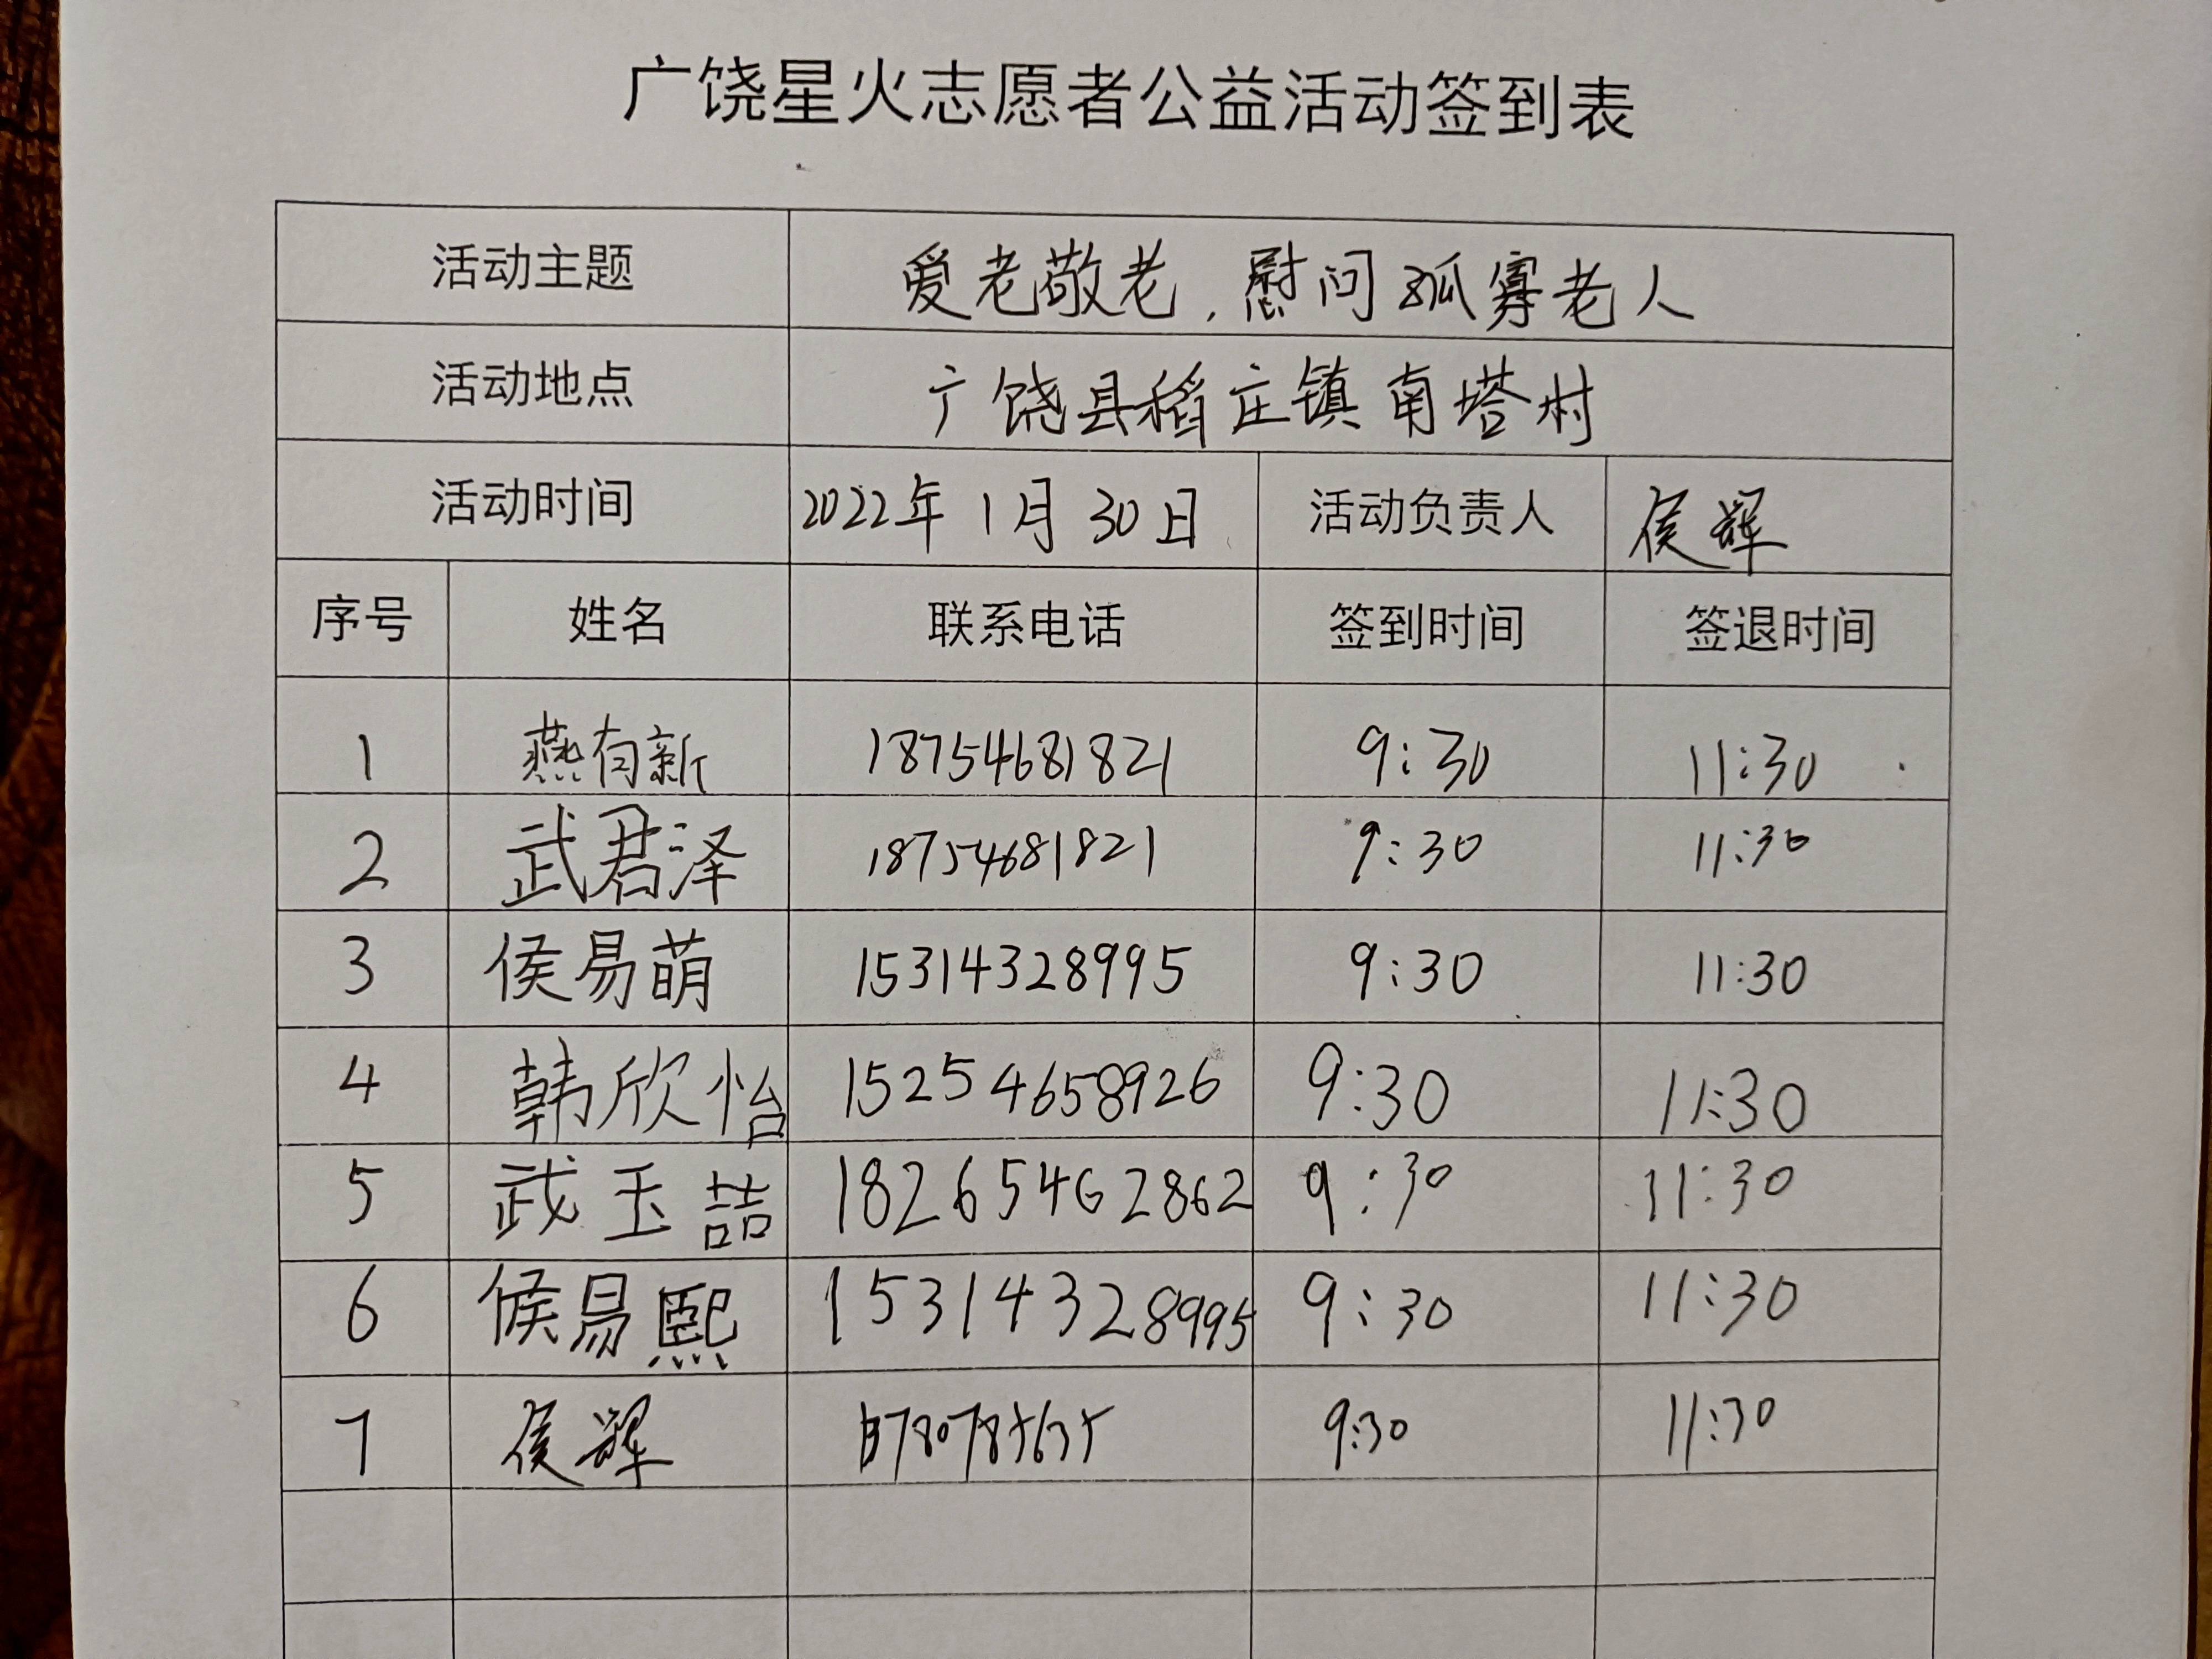 广饶星火志愿者公益活动签到表
活动主题 爱老敬老,慰问孤寡老人
活动地点 广饶县稻庄镇南塔村
活动时间 2022年1月30日 活动负责人 侯辉
序号 姓名 联系电话 签到时间 签退时间
1 燕有新 18754681821 9:30 11:30
2 武君泽 18754681821 9:30 11:30
3 侯易萌 15314328995 9:30 11:30
4 韩欣怡 15254658926 9:30 11:30
5 武玉喆 18265462862 9:30 11:30
6 候易熙 15314328995 9:30 11:30
7 侯辉 9:30 11:30